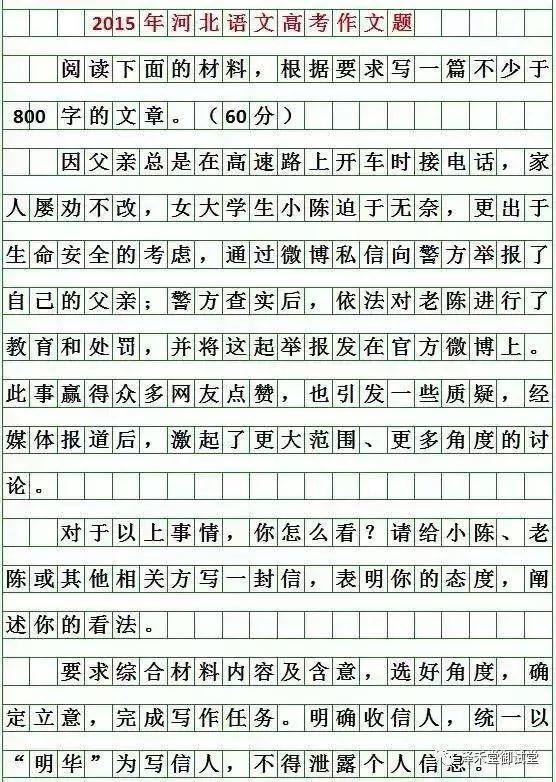 2015年河北语文高考作文题
阅读下面的材料，根据要求写一篇不少于
800字的文章。（60分）
因父亲总是在高速路上开车时接电话，家
人屡劝不改，女大学生小陈迫于无奈，更出于
生命安全的考虑，通过微博私信向警方举报了
自己的父亲；警方查实后，依法对老陈进行了
教育和处罚，并将这起举报发在官方微博上。
此事赢得众多网友点赞，也引发一些质疑，经
媒体报道后，激起了更大范围、更多角度的讨
论。
对于以上事情，你怎么看？请给小陈、老
陈或其他相关方写一封信，表明你的态度，阐
述你的看法。
要求综合材料内容及含意，选好角度，确
定立意，完成写作任务。明确收信人，统一以
“明华”为写信人，不得泄露个人信息。
泽禾堂御试堂